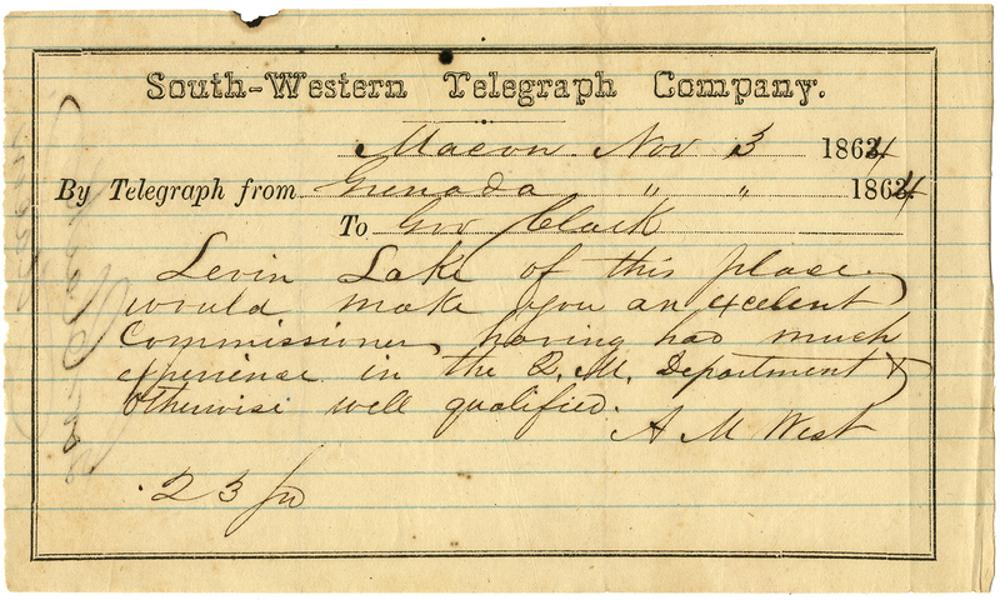 South-Western Telegraph Company.
Macon. Nov 3 1864
By Telegraph from Grenada " " 1864
To Gov Clark
Levin Lake of this place
would make you an excelent
Commissioner having had much
experience in the Q. M. Department &
Otherwise well qualified.
A M West
23